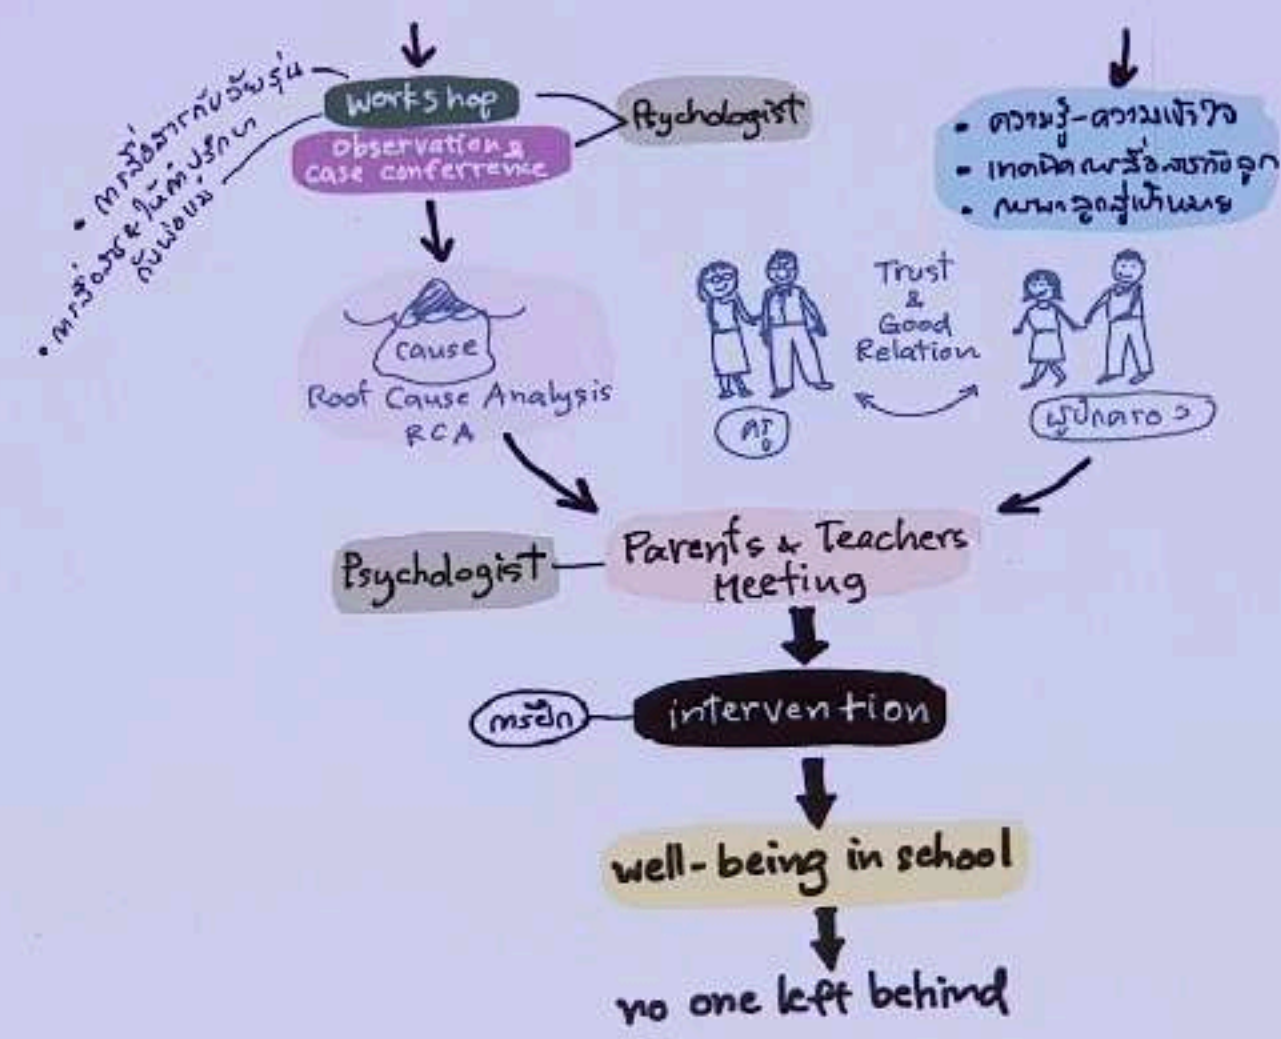 • การสื่อสารกับวัยรุ่น
• การสื่อสาร & ให้คำปรึกษา
กับพ่อแม่
Workshop
Observation &
case conferrence
Psychologist
• ความรู้-ความเข้าใจ
• เทคนิคการสื่อสารกับลูก
• ลูกสู่เป้าหมาย
cause
Root Cause Analysis
RCA
Trust
&
Good
Relation
ครู
ผู้ปกครอง
Psychologist
Parents & Teachers
Meeting
การฝึก
intervention
well-being in school
no one left behind